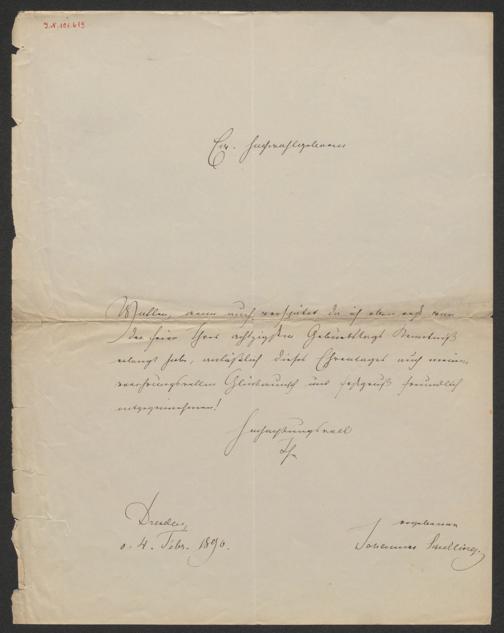 I.N. 101.619
Ew. Hochwohlgeboren
Wollen, wenn auch verspätet da ich eben erst von
der Feier Ihres achtzigsten Geburtstags Kenntniß
erlangt habe, anläßlich dieses Ehrentages auch meinen
verehrungsvollen Glückwunsch und Festgruß freundlich
entgegennehmen!
Hochachtungsvoll
Ihr
Dresden,
d. 4. Febr. 1890.
ergebener
Johannes